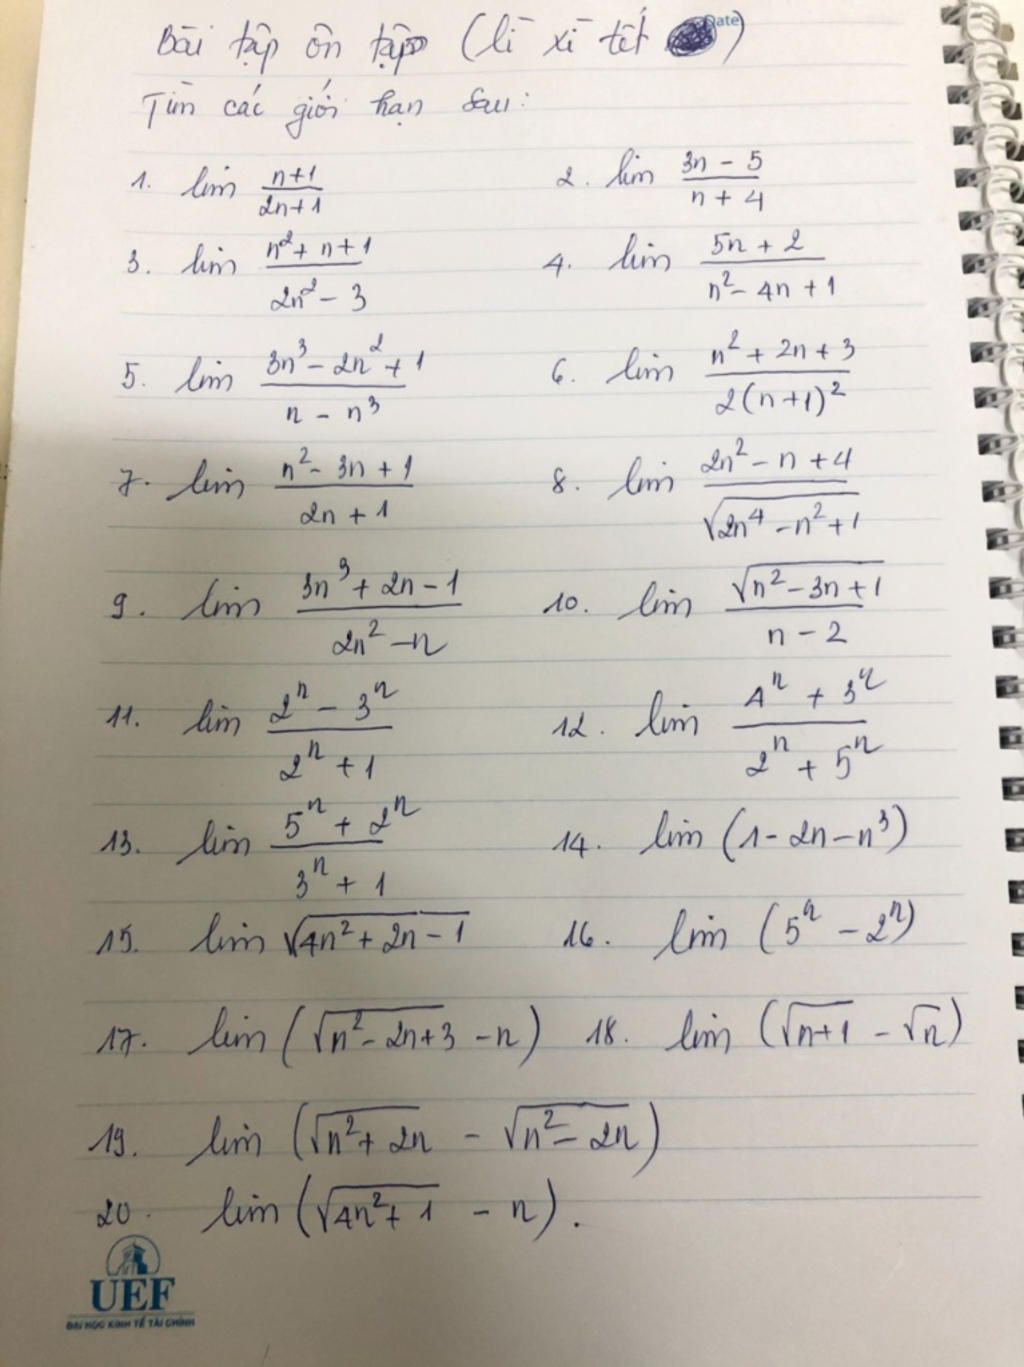 Bài tập ôn tập (lì xì tết Date)
Tìm các giới hạn sau:
1. lim (n+1)/(2n+1) 2. lim (3n - 5)/(n + 4)
3. lim (n² + n + 1)/(2n² - 3) 4. lim (5n + 2)/(n² - 4n + 1)
5. lim (3n³ - 2n² + 1)/(n - n³) 6. lim (n² + 2n + 3)/(2(n+1)²)
7. lim (n² - 3n + 1)/(2n + 1) 8. lim (2n² - n + 4)/√(2n⁴ - n² + 1)
9. lim (3n³ + 2n - 1)/(2n² - n) 10. lim √(n² - 3n + 1)/(n - 2)
11. lim (2ⁿ - 3ⁿ)/(2ⁿ + 1) 12. lim (4ⁿ + 3ⁿ)/(2ⁿ + 5ⁿ)
13. lim (5ⁿ + 2ⁿ)/(3ⁿ + 1) 14. lim (1 - 2n - n³)
15. lim √(4n² + 2n - 1) 16. lim (5ⁿ - 2ⁿ)
17. lim (√(n² - 2n + 3) - n) 18. lim (√(n+1) - √n)
19. lim (√(n² + 2n) - √(n² - 2n))
20. lim (√(4n² + 1) - n).
UEF
ĐẠI HỌC KINH TẾ TÀI CHÍNH